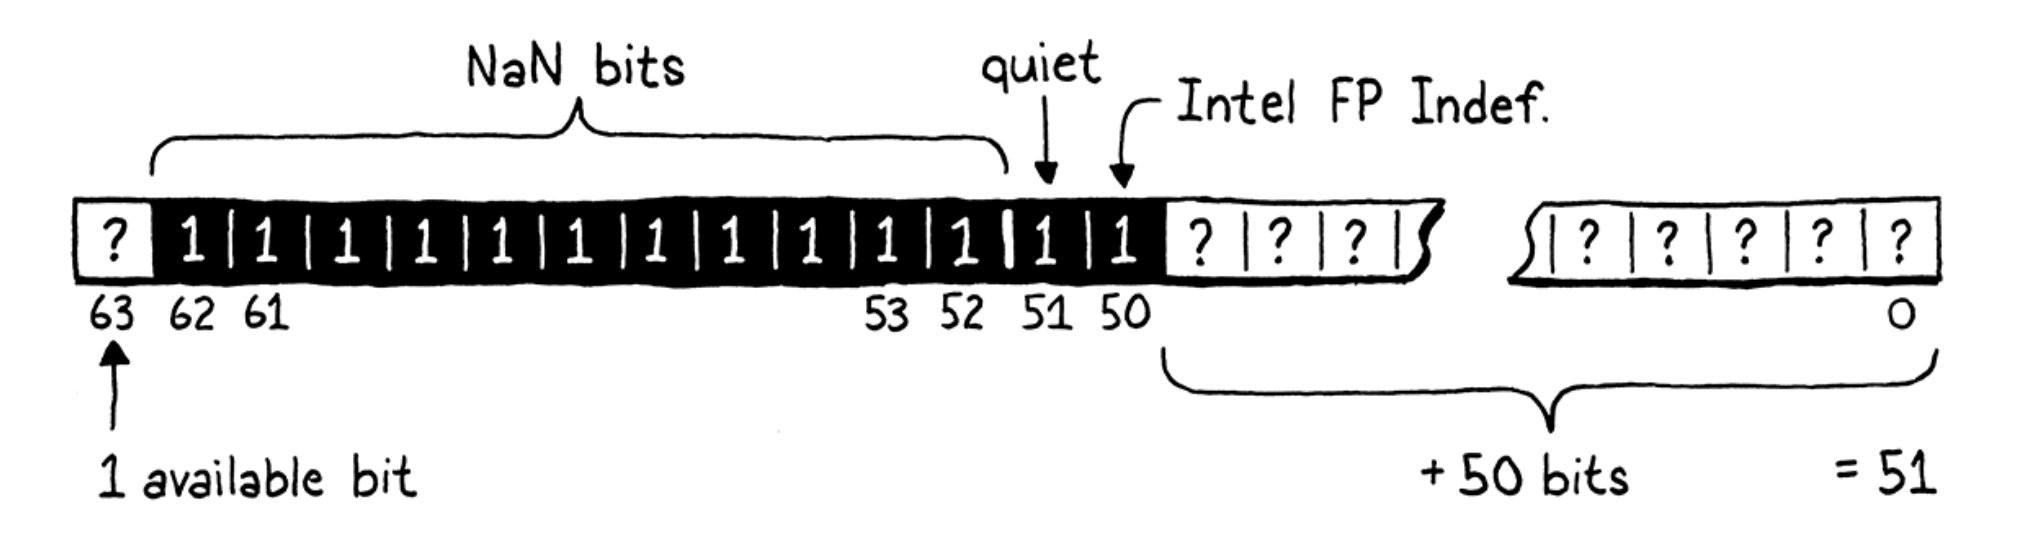 NaN bits
quiet
Intel FP Indef.
? 1 1 1 1 1 1 1 1 1 1 1 1 1 ? ? ? ? ? ? ? ?
63 62 61 53 52 51 50 0
1 available bit
+ 50 bits
= 51